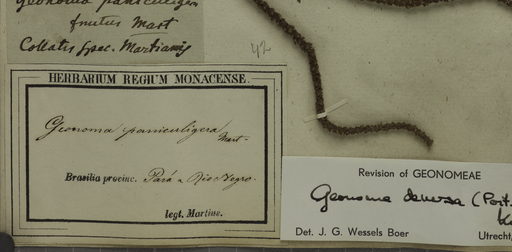 Geonoma paniculigera
frutus Mart
Collatis spec. Martianis
42
HERBARIUM REGIUM MONACENSE.
Geonoma paniculigera Mart-
Brasilia provinc. Pará u Rio Negro.
legt. Martius.
Revision of GEONOMEAE
Geonoma deversa (Poit.
Det. J. G. Wessels Boer
Utrecht,